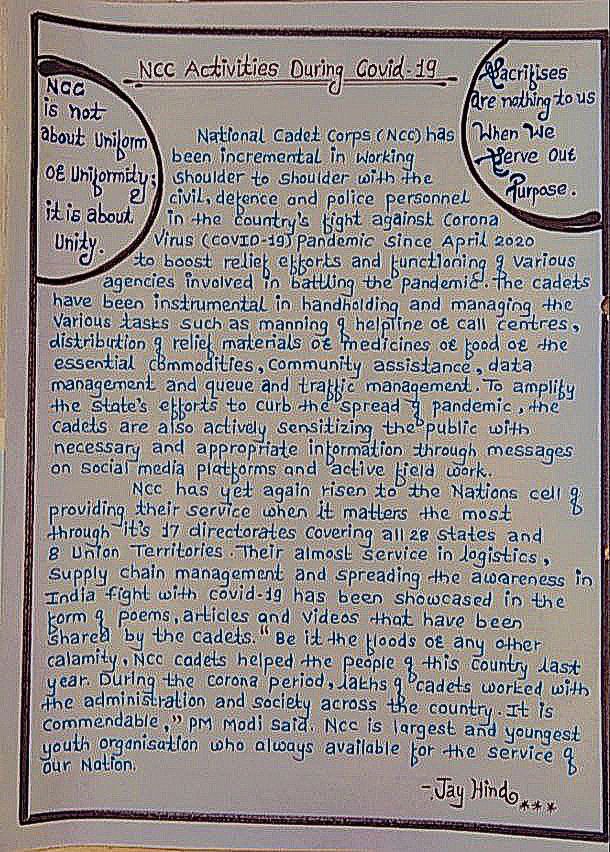 NCC Activities During Covid-19
NCC
is not
about Uniform
or Uniformity;
it is about
Unity.
Sacrifises
are nothing to us
When We
Serve out
Purpose.
National Cadet Corps (NCC) has
been incremental in working
shoulder to shoulder with the
civil, defence and police personnel
in the country's fight against Corona
Virus (COVID-19) Pandemic since April 2020
to boost relief efforts and functioning of various
agencies involved in battling the pandemic. The cadets
have been instrumental in handholding and managing the
various tasks such as manning of helpline or call centres,
distribution of relief materials or medicines or food or the
essential commodities, community assistance, data
management and queue and traffic management. To amplify
the state's efforts to curb the spread of pandemic, the
cadets are also actively sensitizing the public with
necessary and appropriate information through messages
on social media platforms and active field work.
NCC has yet again risen to the Nations cell of
providing their service when it matters the most
through it's 17 directorates covering all 28 states and
8 Union Territories. Their almost service in logistics,
supply chain management and spreading the awareness in
India fight with covid-19 has been showcased in the
form of poems, articles and videos that have been
shared by the cadets. "Be it the floods or any other
calamity, NCC cadets helped the people of this country last
year. During the corona period, lakhs of cadets worked with
the administration and society across the country. It is
commendable," PM Modi said. NCC is largest and youngest
youth organisation who always available for the service of
our Nation.
-Jay Hind ***